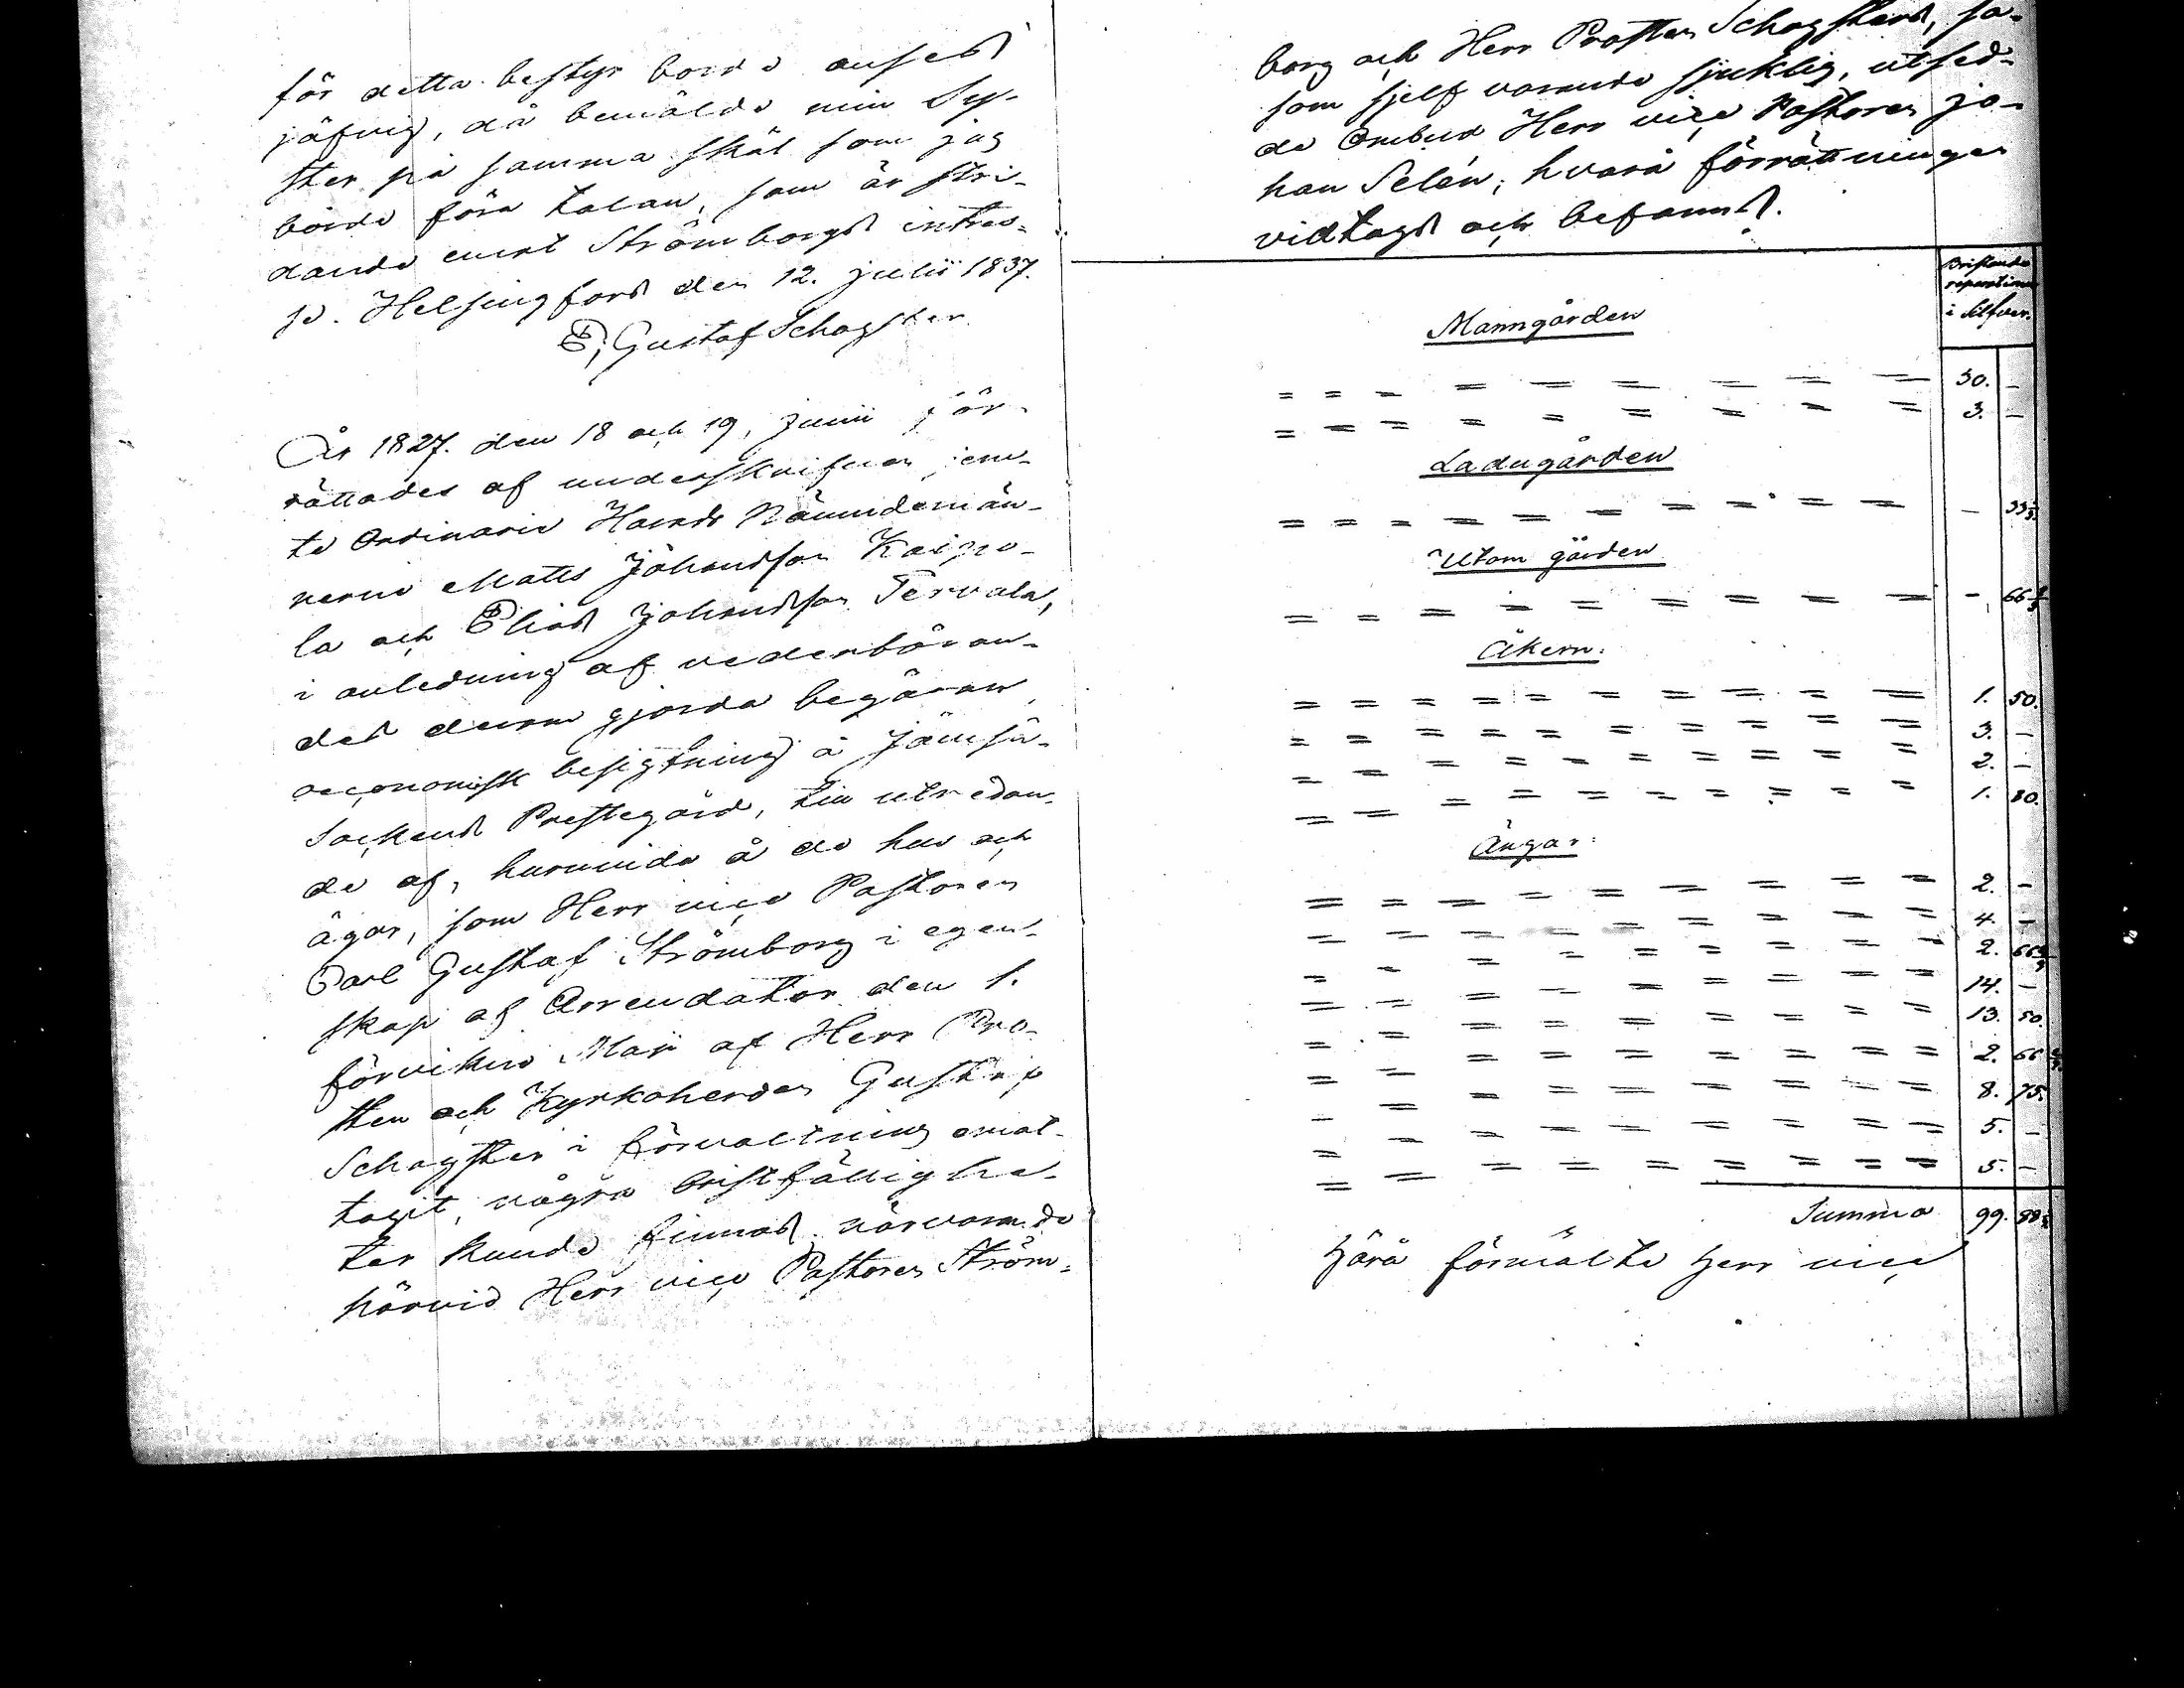 för detta bestyr borde anses
jäfvig, då bemälde min Sy-
ster på samma skäl som jag
borde föra talan, som är stri-
dande emot Strömborgs intres-
se. Helsingfors den 12. julii 1837.
E, Gustaf Schogster
År 1827. den 18 och 19, junii för-
rättades af underskrifven jem-
te Ordinarie Härads Nämndemän-
nerne Matts Johansson Kaipo-
la och Elias Johansson Tervala,
i anledning af vederböran-
des derom gjorda begäran,
oeconomisk besigtning å Jämsä-
Sockens Prestegård, till utredan-
de af, huruvida å de hus och
ägor, som Herr vice Pastoren
Carl Gustaf Strömborg i egen-
skap af Arrendator den 1.
förvikne Maji af Herr Pro-
sten och Kyrkoherden Gustaf
Schogster i förvaltning emot-
tagit, några bristfällighe-
ter kunde finnas, närvarande
härvid Herr vice Pastoren Ström-
borg och Herr Prosten Schogsters, så-
som sjelf varande sjuklig, utsed-
de Ombud Herr vice Pastoren jo-
han Selén; hvarå förrättningen
vidtogs och befanns.
Bristande
reparation
i Silfver.
Manngården
= = = = = = = = = 30. –
= = = = = = = = = 3. –
Ladugården
= = = = = = = = = – 33 1/3.
Utom gården
= = = = = = = = = – 66 2/3
Åkern:
= = = = = = = = = 1. 50.
= = = = = = = = = 3. –
= = = = = = = = = 2. –
= = = = = = = = = 1. 80.
Ängar:
= = = = = = = = = 2. –
= = = = = = = = = 4. –
= = = = = = = = = 2. 66
= = = = = = = = = 14. –
= = = = = = = = = 13. 50.
= = = = = = = = = 2. 66
= = = = = = = = = 8. 75.
= = = = = = = = = 5. –
= = = = = = = = = 5. –
Summa 99. 88
Härå förmälte Herr vice